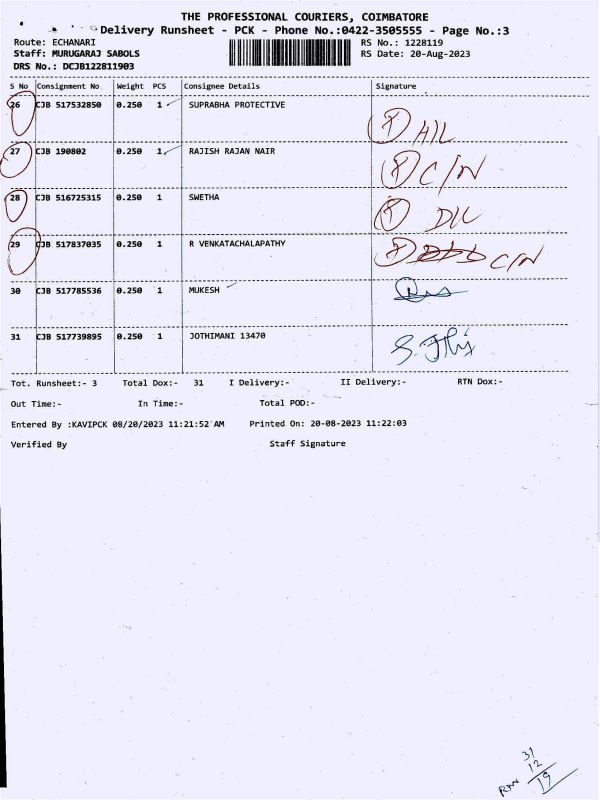 THE PROFESSIONAL COURIERS, COIMBATORE
Delivery Runsheet - PCK - Phone No.:0422-3505555 - Page No.:3
Route: ECHANARI RS No.: 1228119
Staff: MURUGARAJ SABOLS RS Date: 20-Aug-2023
DRS No.: DCJB122811903
S No Consignment No Weight PCS Consignee Details Signature
26 CJB 517532850 0.250 1 SUPRABHA PROTECTIVE
27 CJB 190802 0.250 1 RAJISH RAJAN NAIR C/N
28 CJB 516725315 0.250 1 SWETHA
29 CJB 517837035 0.250 1 R VENKATACHALAPATHY C/N
30 CJB 517785536 0.250 1 MUKESH
31 CJB 517739895 0.250 1 JOTHIMANI 13470
Tot. Runsheet:- 3 Total Dox:- 31 I Delivery:- II Delivery:- RTN Dox:-
Out Time:- In Time:- Total POD:-
Entered By :KAVIPCK 08/20/2023 11:21:52 AM Printed On: 20-08-2023 11:22:03
Verified By Staff Signature
31
12
RTN 19